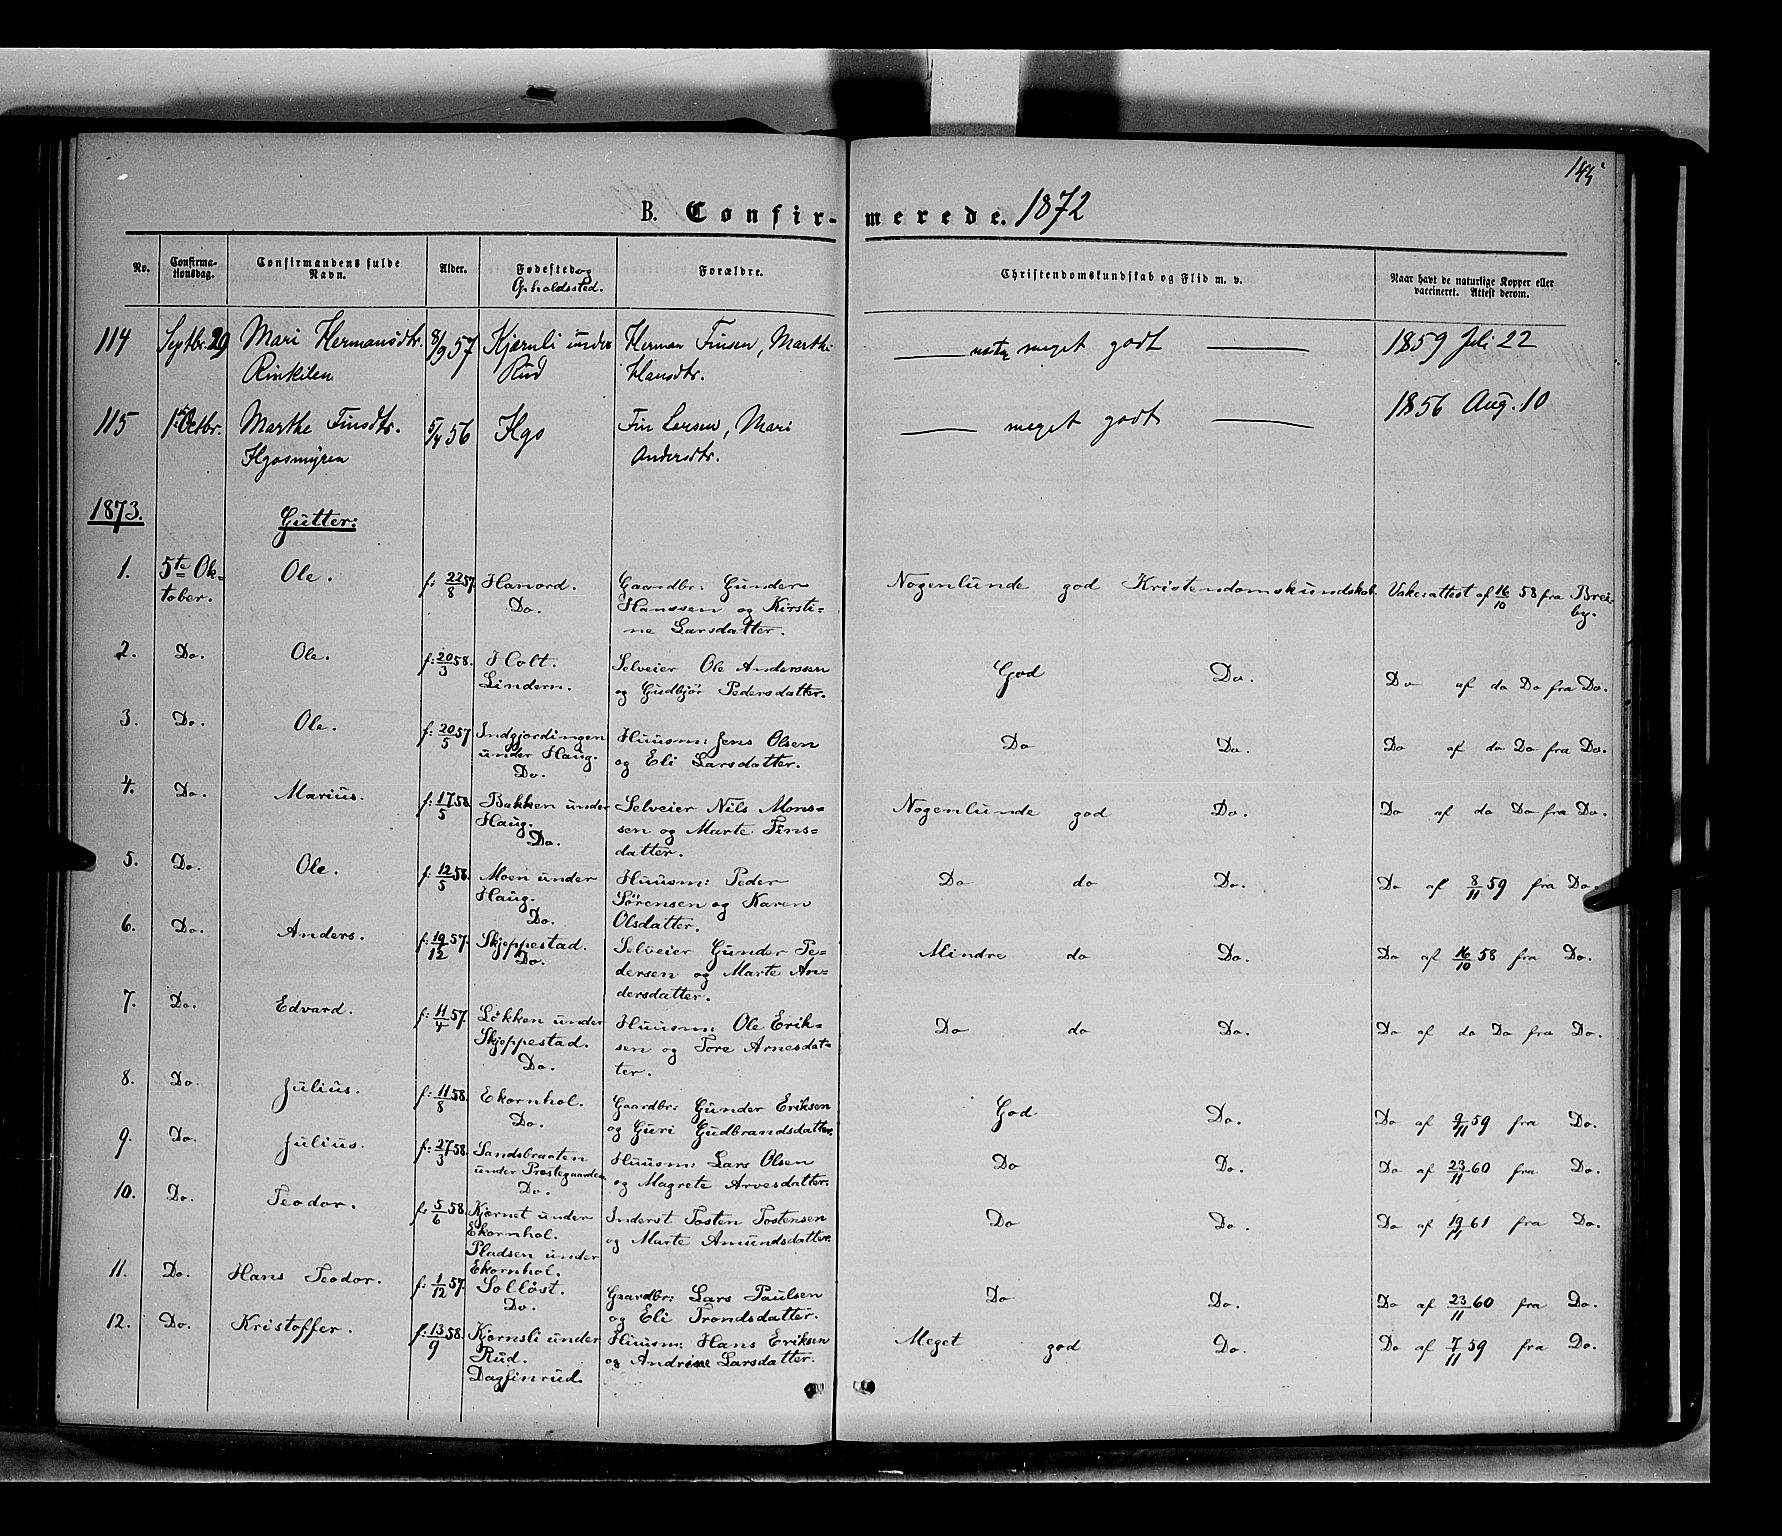 144
B. Confirmerede. 1872
No.
Confirma-
tionsdag.
Confirmandens fulde
Navn.
Alder.
Fødested og
Opholdssted.
Forældre.
Christendomskundskab og Flid m. v.
Naar havt de naturlige Kopper eller
vaccineret. Attest derom.
114 Septbr. 29 Mari Hermansdtr. 8/9 57 Kjærnli under Herman Finsen, Marthe meget godt 1859 Juli 22
Rinkilen Rud Hansdtr.
115 1ste Octbr. Marthe Finsdtr. 5/4 56 Fin Larsen, Mari meget godt 1856 Aug. 10
Andersdtr.
1873. Gutter:
1. 5te Ok- Ole. f: 22/8 57 Hanord. Gaardbr: Gunder Nogenlunde god Kristendomskundskab. Vakcattest af 16/10 58 fra Brei-
tober. Do. Hanssen og Kirsti- by.
ne Larsdatter.
2. Do. Ole. f: 20/3 58. Holt. Selveier Ole Anderssen God Do. Do af do Do fra Do.
Lindern. og Gudbjør Pedersdatter.
3. Do. Ole. f: 20/5 57 Indgjordingen Huusm: Jens Olsen Do Do. Do af do Do fra Do.
under Haug. og Eli Larsdatter.
Do.
4. Do. Marius. f: 17/5 58 Bakken under Selveier Nils Mons- Nogenlunde god Do. Do af do Do fra Do.
Haug. sen og Marte Fins-
Do. datter.
5. Do. Ole. f: 12/5 58. Moen under Huusm: Peder Do do Do. Do af 8/11 59 fra Do.
Haug. Sørensen og Karen
Do. Olsdatter.
6. Do. Anders. f: 19/12 57. Skjeppestad. Selveier Gunder Pe- Mindre do Do. Do af 16/10 58 fra Do.
Do. dersen og Marte An-
dersdatter.
7. Do. Edvard. f: 11/4 57. Løkken under Huusm: Ole Erik- Do do Do. Do af do Do fra Do.
Skjeppestad. sen og Tore Arnesdat-
Do. ter.
8. Do. Julius. f: 11/8 58. Ekornhol. Gaardbr: Gunder Eriksen God Do. Do af 9/11 59 fra Do.
Do. og Guri Gudbrandsdatter.
9. Do. Julius. f: 27/3 58. Sandsbraaten Huusm: Lars Olsen Do Do. Do af 23/11 60 fra Do.
under Prestegaarden og Magrete Arvesdatter.
Do.
10. Do. Teodor. f: 5/6 58. Kjernet under Inderst Tosten Tostensen Do Do. Do af 19/11 61 fra Do.
Ekornhol. og Marte Amundsdatter.
Pladsen under
Ekornhol.
11. Do. Hans Teodor. f: 1/12 57. Solløst. Gaardbr: Lars Paulsen Do Do. Do af 23/11 60 fra Do.
Do. og Eli Trondsdatter.
12. Do. Kristoffer. f: 13/9 58. Kjernsli under Huusm: Hans Eriksen Meget god Do. Do af 7/11 59 fra Do.
Rud. og Andrine Larsdatter.
Dagfinrud.